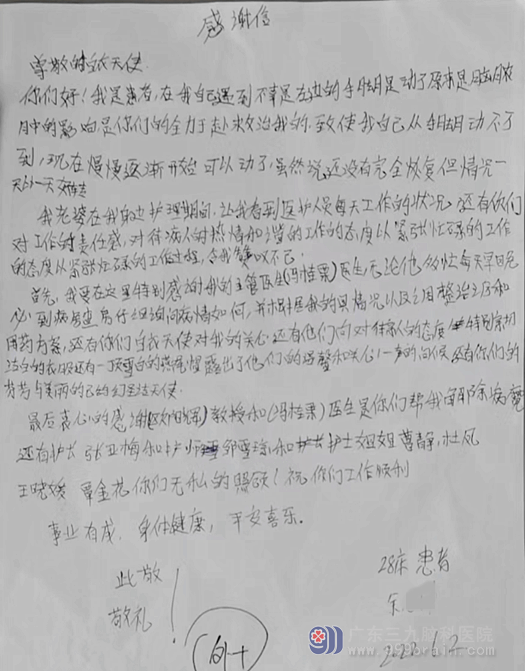 感谢信
尊敬的白衣天使
你们好！我是患者，在我自己遇到不幸是在边的手脚是动了原来是脑部
肿的影响是你们的全力于赴来救治我的，致使我自己从手脚动不了
到，现在慢慢逐渐开始可以动了，虽然说还没有完全恢复但情况一
天比一天好转
我老婆在我身边护理期间，让我看到医护人员每天工作的状况。还有你们
对工作的责任感，对待病人的热情和谐的工作的态度以紧张忙碌的工作
的态度以紧张忙碌的工作过程，令我赞叹不已。
首先，我要在这里特别感谢我的主管医生(冯桂果)医生无论他多忙每天早晚
必到病房查房仔细询问病情如何，并根据我的具情况以及调整治疗和
用药方案，还有你们白衣天使对我的关心还有他们向对待病人的态度 特别亲切
洁白的衣服还有一顶雪白的燕尾帽露出了他们的 和关心！一声的问候还有你们的
芳芳与美丽的 天使。
最后衷心的感谢(欧阳辉)教授和(冯桂果)医生是你们帮我解除病魔
还有护长 张亚梅和护师 邹雪琼和护士姐姐 曹静，杜风
王晓媛 覃金花你们无私的照顾！祝你们工作顺利
事业有成，身体健康，平安喜乐。
此致
敬礼！
28床患者
广东三九脑科医院
www.999brain.com